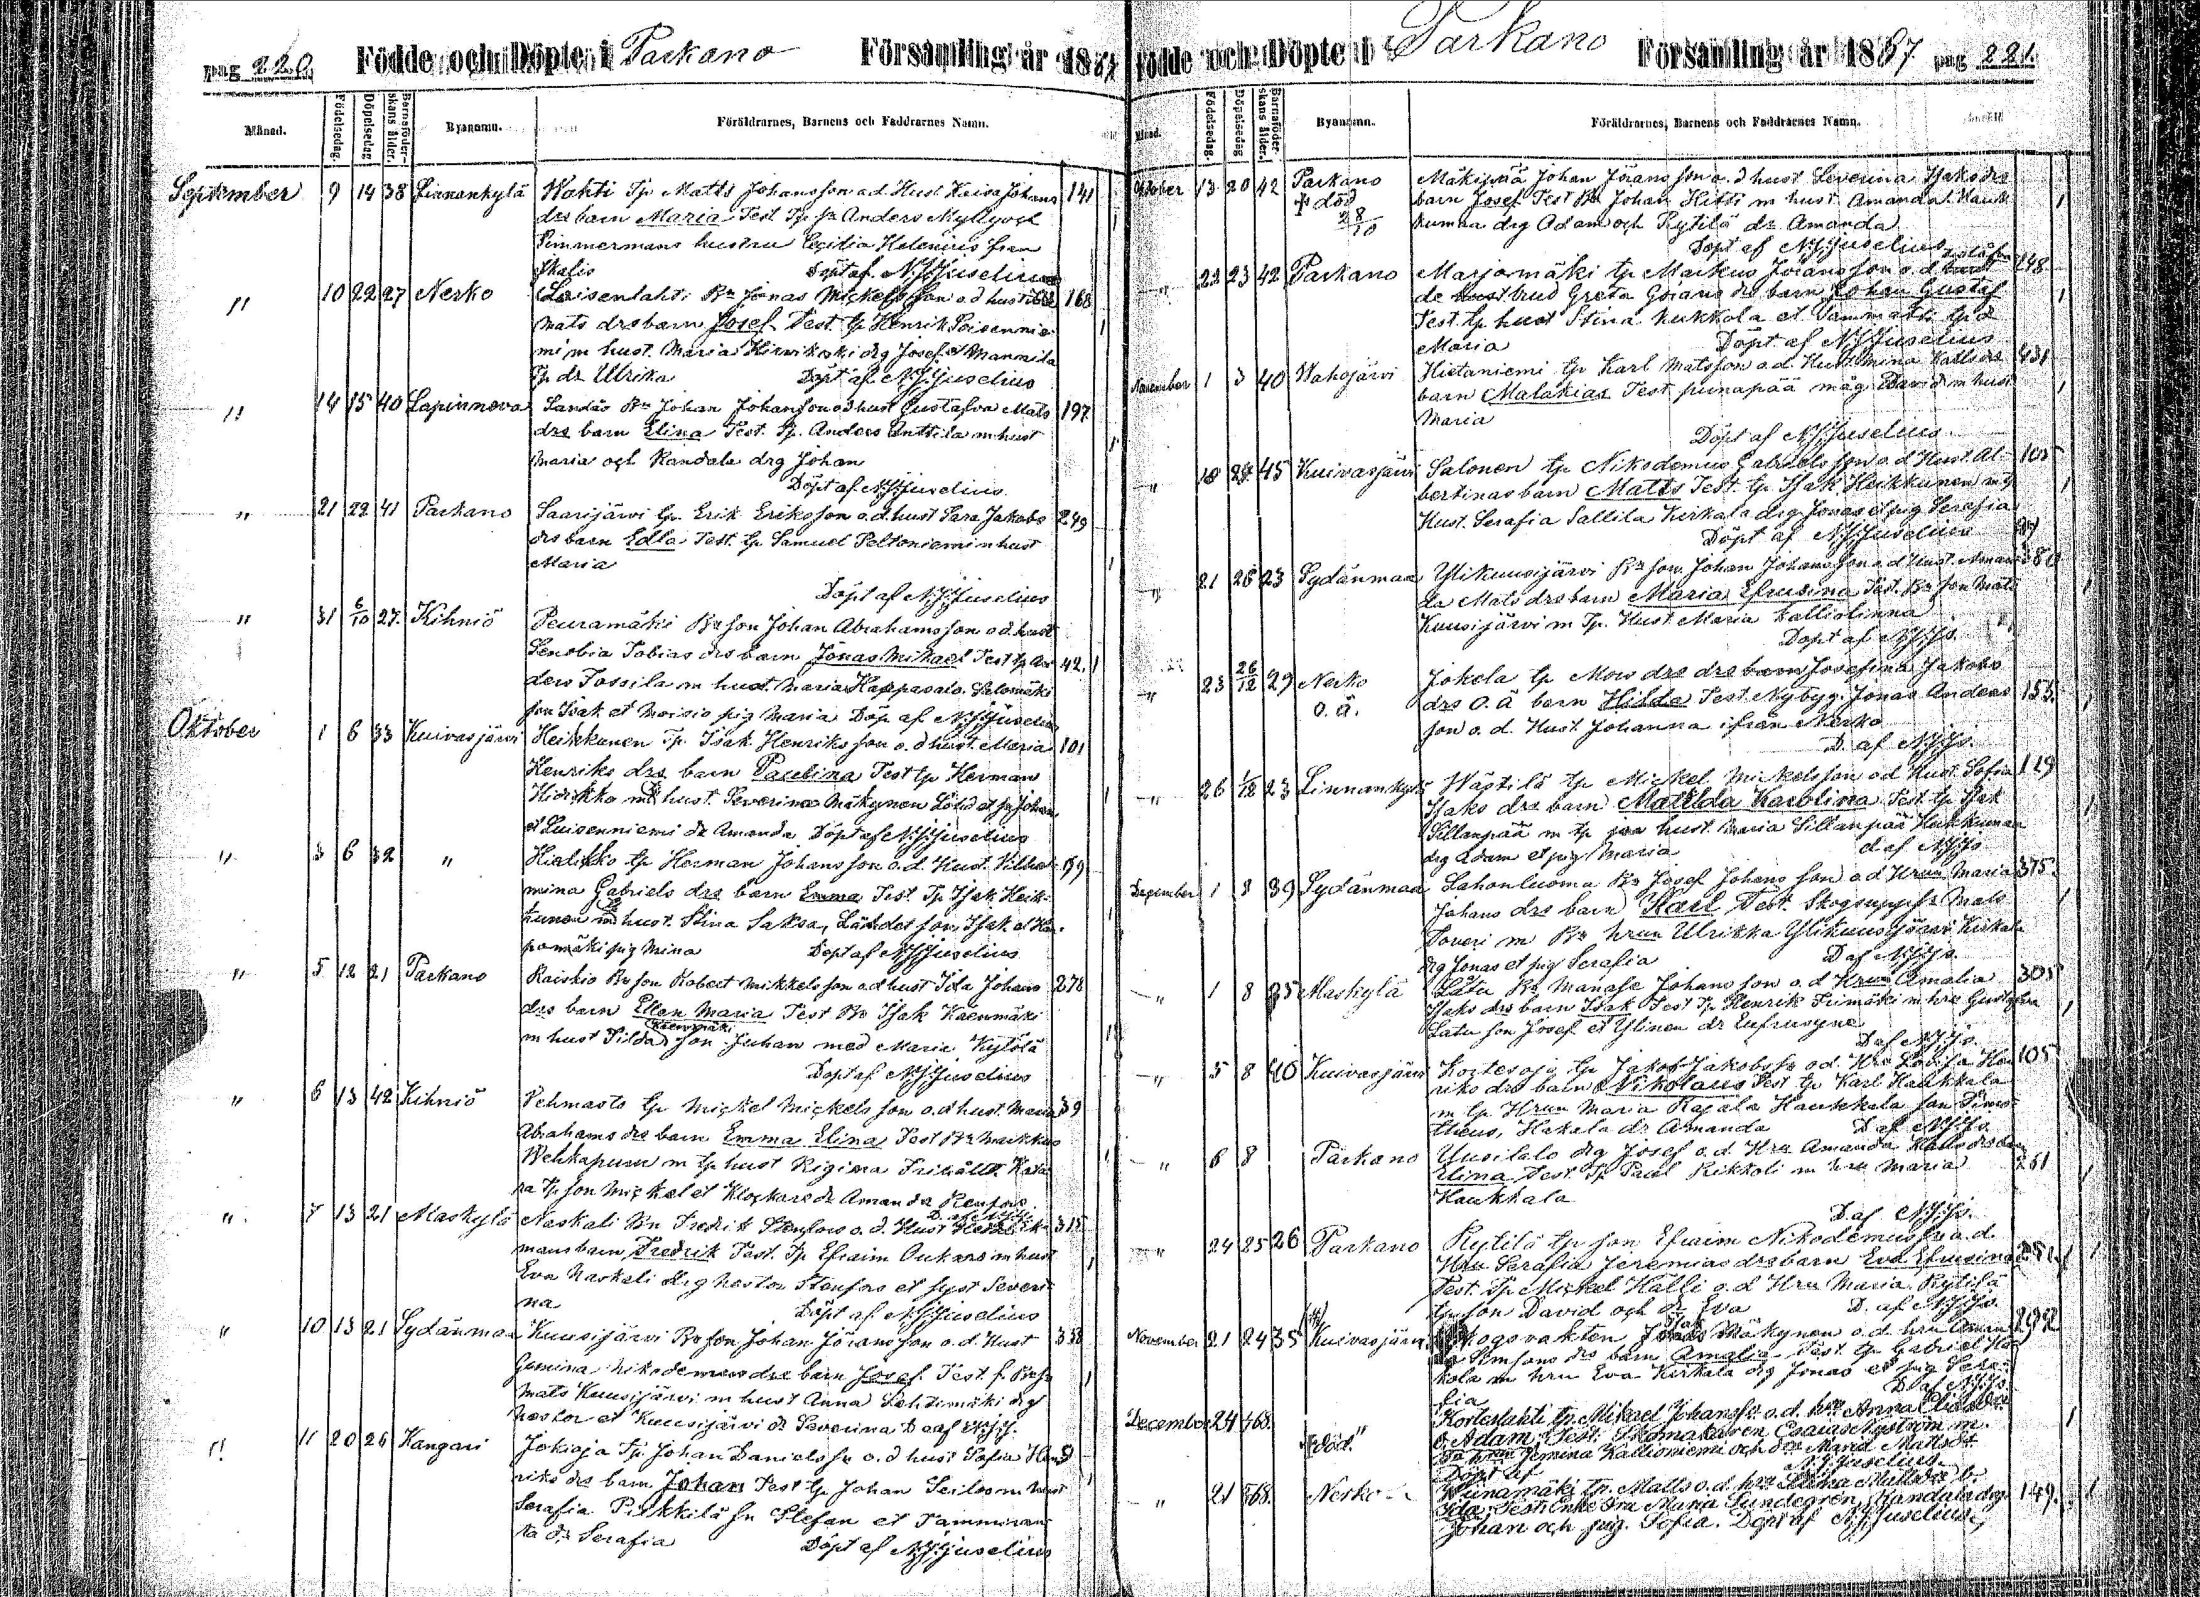 pag 220. Födde och Döpte i Parkano Församling år 1887
Månad. Födelsedag. Döpelsedag Barnaföder-skans ålder. Byanamn. Föräldrarnes, Barnens och Faddrarnes Namn.
September 9 14 38 Linnankylä Wahti Tp Matts Johansson o.d. Hust Kaisa Johans 141
drs barn Maria Test Tp sr Anders Myllys och
Timmermans hustru Cecilia Helenius från
Skalis Döpt af N.J.Juselius
" 10 22 27 Nerko Loisenlahti Bn Jonas Mickelsson o.d hust 168
Mats drs barn Josef Test. tp Henrik Loisennie-
mi m hust. Maria Hirwikoski drg Josef et Mannila
Tp dr Ulrika Döpt af N.J.Juselius
" 14 15 40 Lapinneva Sandås Bn Johan Johansson o d hust Gustafva Mats 197
drs barn Elina Test. Tp. Anders Anttila m hust
Maria och Randala drg Johan
Döpt af N.J.Juselius
" 21 22 41 Parkano Saarijärvi tp. Erik Eriksson o.d. hust Sara Jakobs 249
drs barn Edla Test. tp Samuel Peltoniemi m hust
Maria
Döpt af N.J.Juselius
" 31 6/10 27. Kihniö Peuramäki Bn son Johan Abrahamsson o d hust
Senobia Tobias drs barn Jonas Mikael Test tp An- 42.
ders Tossila m hust. Maria Kappasalo. Salomäki
son Isak et Moisio pig Maria Döp. af N.J.Juselius
Oktober 1 6 33 Kuivasjärvi Heikkunen Tp. Isak Henriksson o.d hust. Maria 101
Henriks drs barn Paulina Test tp Herman
Hirikko m hust. Severina Mäkynen Johan
et Luisenniemi dr Amanda Döpt af N.J.Juselius
" 3 6 32 " tp Herman Johansson o.d. Hust. Vilhel- 99
mina Gabriels drs barn Emma Test Tp Isak Heik-
kunen m hust. Stina Saksa, son Isak et
pig Mina Döpt af N.J.Juselius
" 5 12 21 Parkano Raiskio Bn son Robert Mikkelsson o d hust Ida Johans 278
drs barn Ellen Maria Test Bn Isak Käenmäki
m hust Tilda Käenmäki son Juhan med Maria Kytölä
Döpt af N.J.Juselius
" 6 13 42 Kihniö Pehmasto tp Mickel Mickelsson o.d hust. Maria 39
Abrahams drs barn Emma Elina Test Bn Markkus
Wehkapuru m tp hust Rigina
tp son Mickel et Klockare dr Amanda Renfors
D. af N.J.J.
" 7 13 21 Maskylä Naskali Bn Fredik Stenfors o.d. Hust 315
mans barn Fredrik Test. Tp Efraim Oukari m hust
Eva Naskali drg Nestor Stenfors et syst Severi-
na Döpt af N.J.Juselius
" 10 13 21 Sydänmaa Kuusijärvi Bn son Johan Jöransson o.d. Hust 338
Gemina Nikodemus drs barn Josef Test. f. Bn sn
Mats Kuusijärvi m hust Anna Lehtimäki drg
Nestor et Kuusijärvi dr Severina D af N.J.J.
" 11 20 26 Kangari Jokioja Tp. Johan Danielsson o.d hust Sofia Hen-
riks drs barn Johan Test tp Johan Seilo m hust
Serafia Pirkkilä sn Stefan et Tammiran-
ta dr Serafia Döpt af N.J.Juselius
Födde och Döpte i Parkano Församling år 1887 pag 221.
Månad. Födelsedag. Döpelsedag Barnaföder-skans ålder. Byanamn. Föräldrarnes, Barnens och Faddrarnes Namn.
Oktober 13 20 42 Parkano Mäkipää Johan Jöransson o.d hust Severina Isaks drs
† död barn Josef Test Bn Johan Hitti m hust Amanda Hauk-
28/10 kumaa drg Adam och Rytilä dr. Amanda
Döpt af N.J.Juselius
" 22 23 42 Parkano Marjomäki tp Markus Jöransson o.d trolofva 148
de brud Greta Görans drs barn Johan Gustaf
Test. tp hust Stina Kukkola et Sammatti tp d
Maria Döpt af N.J.Juselius
November 1 3 40 Wahojärvi Hietaniemi tp Karl Matsson o.d. Hust Mina Kalls drs 431
barn Malakias Test. punapää måg David m hust
Maria
Döpt af N.J.Juselius
" 18 24 45 Kuivasjärvi Salonen tp Nikodemus Gabrielsson o.d Hust. Al- 105
bertinas barn Matts Test. tp Isak Heikkunen m
Hust. Serafia Sallila Kerkala drg Jonas et pig Serafia
Döpt af N.J.Juselius
" 21 26 23 Sydänmaa Ylikuusijärvi Bn son Johan Johansson o.d Hust. Aman- 380
da Mats drs barn Maria Efrusina Test. Bn son Mats
Kuusijärvi m Tp. Hust Maria Kalliolinna
Döpt af N.J.Js.
" 23 26/12 29 Nerko Jokela tp Mors drs drs Josefina Jakobs
O.ä. drs O.ä barn Hilda Test. Nybyg. Jonas Anders 153.
son o.d. Hust Johanna ifrån Nerko
D. af N.J.Js.
" 26 1/12 23 Linnankylä Wästilä tp Mickel Mickelsson o.d Hust. Sofia 129
Isaks drs barn Matilda Karolina Test. tp Isak
Sillanpää m tp hust. Maria Sillanpää Haukkumaa
drg Adam et pig Maria d af N.J.Js
December 1 3 39 Sydänmaa Lahonluoma Bn Josef Johansson o d Hrun Maria 375.
Johans drs barn Karl Test. Skogsupps. Mats
Toveri m Bn hrun Ulrikka Ylikuusijärvi Kerkala
drg Jonas et pig Serafia D af N.J.Js.
" 1 8 35 Maskylä Latu Bn Manase Johansson o.d Hrun Amalia 305
Isaks drs barn Isak Test Tp Henrik m hru Gustafva
Latu son Josef et Ylinen dr Eufrusyne
D af N.J.Js.
" 5 8 40 Kuivasjärvi Kortesoja tp Jakob Jakobsson o.d. Hru Lovisa Hen- 105
riks drs barn Nikolaus Test tp Karl Haukkala
m tp Hrun Maria Rajala Haukkala son Timo-
theus, Hakala dr Amanda D af N.J.Js.
" 6 8 Parkano Uusitalo drg Josef o.d. Hru Amanda Kalls drs barn
Elina Test. Tp Paul Kikkoli m hru Maria 261
Haukkala
D. af N.J.Js.
" 24 25 26 Parkano Rytilä tp son Efraim Nikodemusson o.d.
Hru Serafia Jeremias drs barn Eva Efrusina 251.
Test. Tp Mickel Halli o.d Hru Maria Rytilä
tp son David och dr Eva D. af N.J.Js.
November 21 24 35 Kuivasjärvi Skogsvakten Isak Mäkynen o.d. hru Aman- 292
da Simsons drs barn Amalia Test. tp Gabriel Ha-
kola m hru Eva Kerkala drg Jonas et pig Sera-
fia D. af N.J.Js
December 24 /68. Kortelahti tp. Mikael Johansson o.d. hru Anna Elias dr
"död." b. Adam; Test. Skomakaren Esaias Nyström m.
hrun Jemina Kallioniemi och dr Maria Matts dr
Döpt af N.J.Juselius.
" 21 /68. Nerko Wiinamäki tp. Matts o.d. hru Matts dr b.
Ida; Test. Enke fru Maria Sundegren, Randala drg 149.
Johan och pig. Sofia. Döpt af N.J.Juselius,